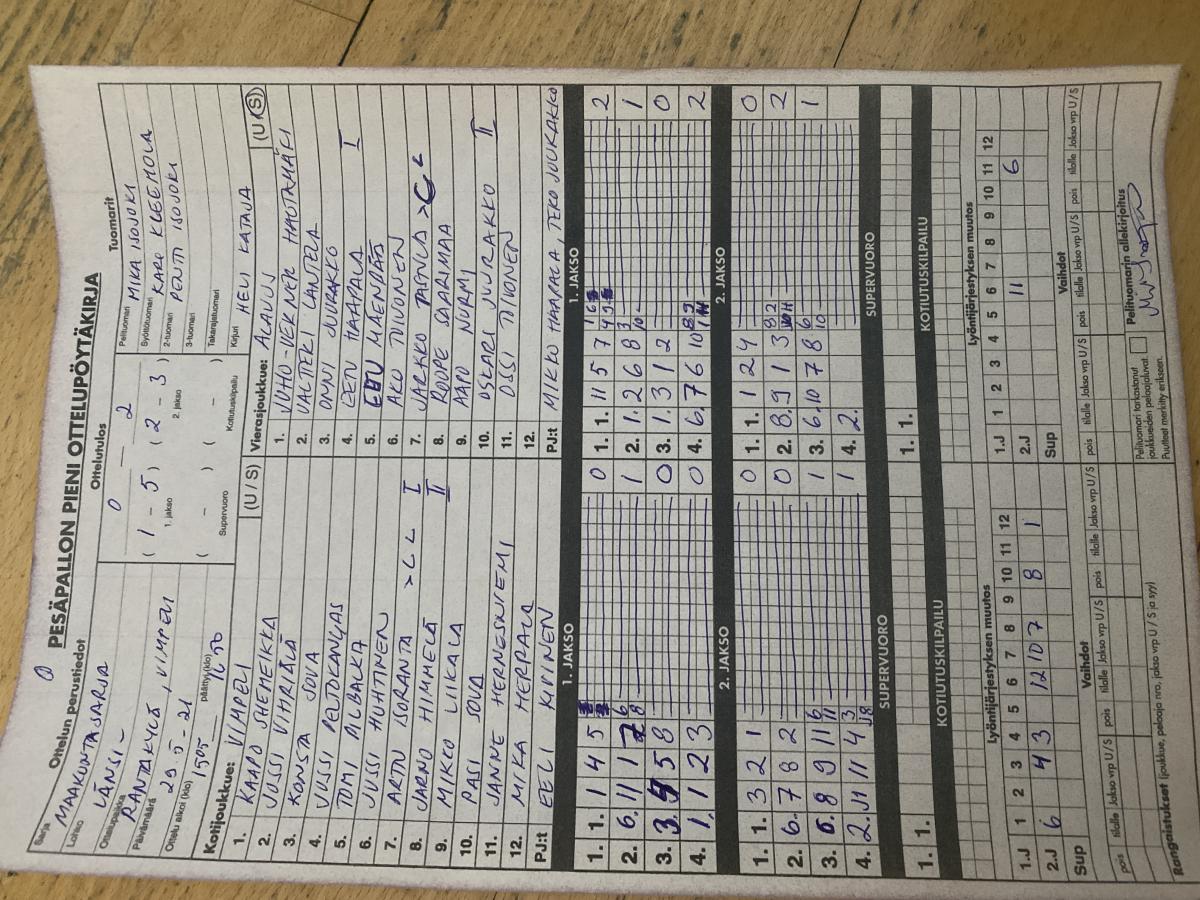 PESÄPALLON PIENI OTTELUPÖYTÄKIRJA
Ottelun perustiedot
Sarja MAAKUNTASARJA
Lohko LÄNSI-
Ottelupaikka RANTAKYLÄ, VIMPELI
Päivämäärä 29-5-21
Ottelu alkoi (klo) 1505 päättyi (klo) 1650
Ottelutulos
0 — 2
( 1 – 5 ) ( 2 – 3 )
1. jakso 2. jakso
( – ) ( – )
Supervuoro Kotiutuskilpailu
Tuomarit
Pelituomari MIKA ISOJOKI
Syöttötuomari KARE KLEEMOLA
2-tuomari PENTTI ISOJOKI
3-tuomari
Takarajatuomari
Kirjuri HELI KATAJA
Kotijoukkue: VIMPELI (U / S)
1. KAAPO SHEMEIKKA
2. JUSSI VIHRIÄLÄ
3. KONSTA SOVA
4. JUSSI PELTOKANGAS
5. TOMI ALBALKA
6. JUSSI HUHTINEN
7. ARTU ISORANTA > C L
8. JARNO HIMMELÄ I
9. MIKKO LIIKALA II
10. PASI SOVA
11. JANNE HERNESNIEMI
12. MIKA KERPALA
PJ:t EELI KIVINEN
Vierasjoukkue: ALAVUS (U / S)
1. JUHO-VERNER HAUTAMÄKI
2. VALTERI LANTELA
3. ONNI JUURAKKO
4. EETU HAAPALA I
5. EETU MÄENPÄÄ
6. AKU TIIVONEN
7. JARKKO > C L
8. ROOPE SAARIMAA
9. AAPO NURMI
10. OSKARI JUURAKKO II
11. OSSI TIVONEN
12.
PJ:t MIKKO HAAPALA, TERO JUURAKKO
1. JAKSO
1. 1. 1 4 5 0
2. 6. 11 1 2 6 8 1
3. 3. 9 5 8 0
4. 1. 1 2 3 0
1. JAKSO
1. 1. 11 5 7 2
2. 1. 2 6 8 3 10 1
3. 1. 3 1 2 0
4. 6. 7 6 10 2
2. JAKSO
1. 1. 3 2 1 0
2. 6. 7 8 2 0
3. 6. 8 9 11 6 11 1
4. 2. J1 11 4 3 J8 1
2. JAKSO
1. 1. 1 2 4 0
2. 8. 9 1 3 2
3. 6. 10 7 8 6 10 1
4. 2.
SUPERVUORO
1. 1.
SUPERVUORO
1. 1.
KOTIUTUSKILPAILU
KOTIUTUSKILPAILU
Lyöntijärjestyksen muutos
1 2 3 4 5 6 7 8 9 10 11 12
1.J
2.J 6 4 3 12 10 7 8 1
Sup
Lyöntijärjestyksen muutos
1 2 3 4 5 6 7 8 9 10 11 12
1.J
2.J 11 6
Sup
Vaihdot
pois tilalle Jakso vrp U / S pois tilalle Jakso vrp U / S
Vaihdot
pois tilalle Jakso vrp U / S pois tilalle Jakso vrp U / S
Rangaistukset (joukkue, pelaaja nro, jakso vrp U / S ja syy)
Pelituomari tarkastanut
joukkueiden pelaajaluvat.
Puutteet merkitty erikseen.
Pelituomarin allekirjoitus